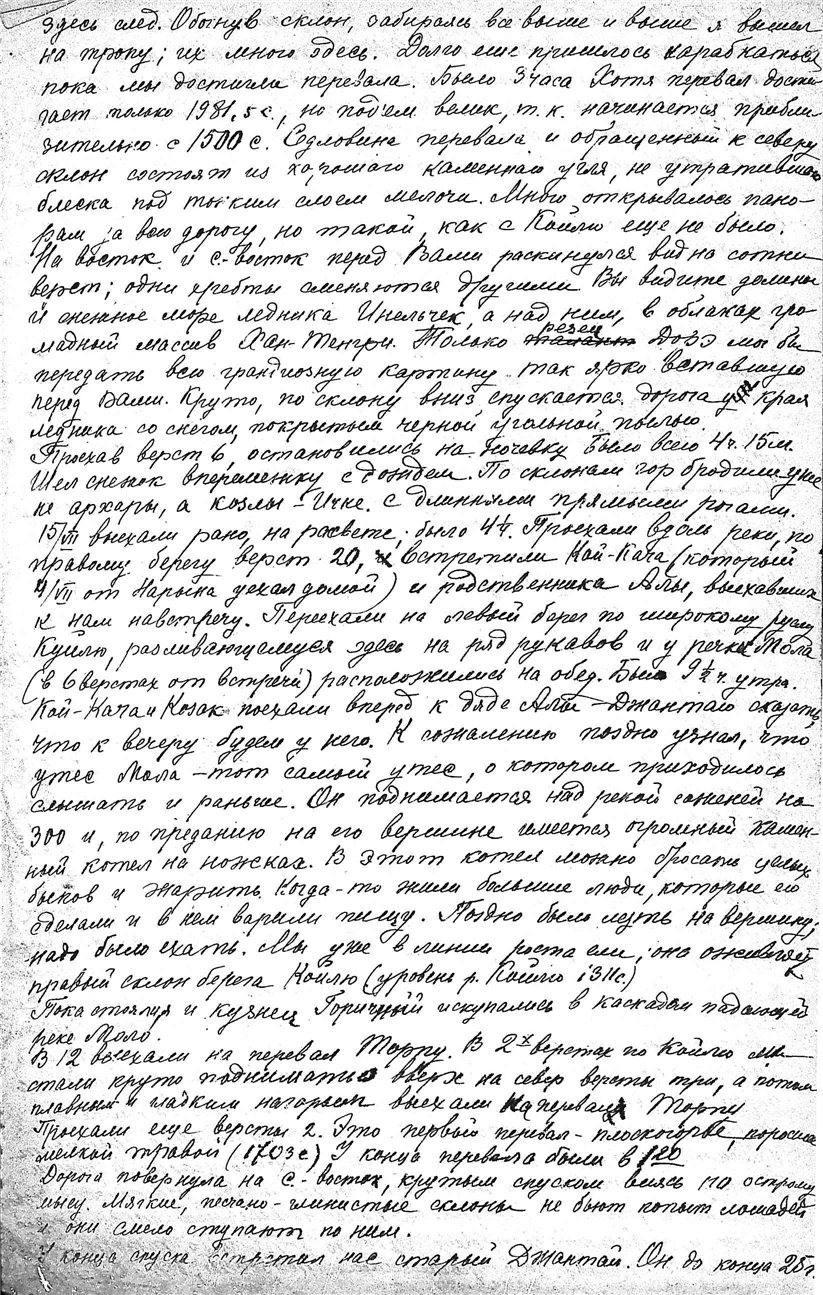 здесь след. Обогнув склон, забираясь все выше и выше я вышел
на тропу; их много здесь. Долго еще пришлось карабкаться,
пока мы достигли перевала. Было 3 часа Хотя перевал дости
гает только 1981,5 с., но под'ем велик, т.к. начинается прибли
зительно с 1500 с. Седловина перевала и обращенный к северу
склон состоят из хорошаго каменнаго угля, не утратившаго
блеска под тонким слоем мелочи. Много открывалось пано-
рам за всю дорогу, но такой, как с Койлю еще не было.
На восток и с.-восток перед Вами раскинулся вид на сотни
верст; одни хребты сменяются другими Вы видите долины
и снежное море ледника Инельчек, а над ним, в облаках гро
мадный массив Хан-Тенгри. Только резец Дорэ мог бы
передать всю грандиозную картину так ярко вставшую
перед Вами. Круто, по склону вниз спускается дорога у края
ледника со снегом, покрытым черной угольной пылью.
Проехав верст 6, остановились на ночевку Было всего 4 ч. 15 м.
Шел снежок вперемежку с дождем. По склонам гор бродили уже
не архары, а козлы - Ичке. с длинными прямыми рогами.
15/VII выехали рано, на рассвете; было 4 ч. Проехали вдоль реки, по
правому берегу верст 20, встретили Кой-Кача (который
4/VII от Нарына уехал домой) и родственника Алы, выехавших
к нам навстречу. Переехали на левый берег по широкому руслу
Куйлю, разливающемуся здесь на ряд рукавов и у речки Мола
(в 6 верстах от встречи) расположились на обед. Было 9 ½ ч. утра.
Кой-Кача и Козак поехали вперед к дяде Алы - Джантаю сказать,
что к вечеру будем у него. К сожалению поздно узнал, что
утес Мола - тот самый утес, о котором приходилось
слышать и раньше. Он поднимается над рекой саженей на
300 и, по преданию на его вершине имеется огромный камен-
ный котел на ножках. В этот котел можно бросать целых
быков и жарить. Когда-то жили большие люди, которые его
сделали и в нем варили пищу. Поздно было лезть на вершину;
надо было ехать. Мы уже в линии роста ели; она оживляет
правый склон берега Койлю (уровень р. Койлю 1311 с.)
Пока стояли я и кузнец Горичный искупались в каскадах падающей
реке Моло.
В 12 выехали на перевал Торпу. В 2х верстах по Койлю мы
стали круто подниматься вверх на север версты три, а потом
плавным и гладким нагорьем выехали на перевал Торпу
Проехали еще версты 2. Это первый перевал - плоскогорье, поросшее
мелкой травой (1703 с) У конца перевала были в 1 20
Дорога повернула на с.-восток, крутым спуском виясь по острому
мысу. Мягкие, песчано-глинистые склоны не бьют копыт лошадей
и они смело ступают по ним.
У конца спуска встретил нас старый Джантай. Он до конца 25 г.